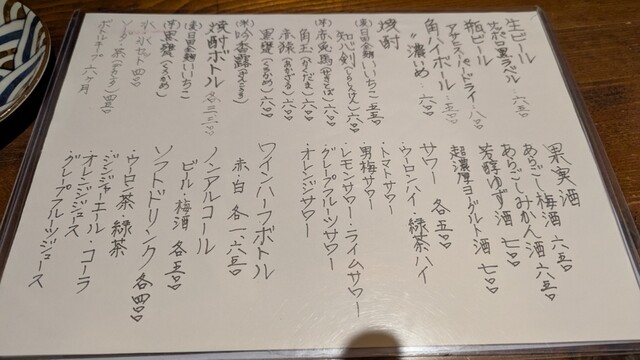 生ビール
サッポロ黒ラベル 六五〇
瓶ビール
アサヒスーパードライ 八〇〇
角ハイボール 五五〇
〃 濃いめ 六〇〇
焼酎
(麦)日田全麹いいちこ 五五〇
六〇〇
(芋)赤兎馬(せきとば) 六〇〇
角玉(かくだま) 六〇〇
赤霧(あかぎり) 六〇〇
黒甕(くろかめ) 六〇〇
(米)吟香露(ぎんこうろ) 六〇〇
焼酎ボトル
(麦)日田全麹いいちこ
(芋)黒甕(くろかめ)
ボトルキープ 六ヶ月
果実酒
あらごし梅酒 六五〇
あらごしみかん酒 六五〇
芳醇ゆず酒 七〇〇
超濃厚ヨーグルト酒 七〇〇
サワー 各五五〇
・ウーロンハイ・緑茶ハイ
・トマトサワー
・男梅サワー
・レモンサワー・ライムサワー
・グレープフルーツサワー
・オレンジサワー
ワインハーフボトル
赤 白 各一六五〇
ノンアルコール
ビール・梅酒 各五〇〇
ソフトドリンク 各四〇〇
・ウーロン茶・緑茶
・ジンジャーエール・コーラ
・オレンジジュース
・グレープフルーツジュース